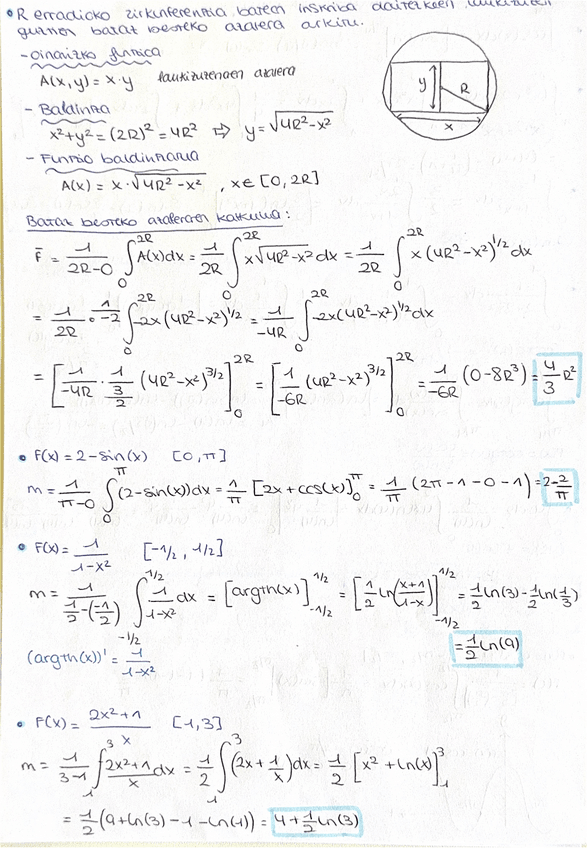 • R erradioko zirkunferentzia baten inskriba daitezkeen laukizuzen
guztien batez besteko azalera aurkitu.
- Oinarrizko funtzioa
A(x,y) = x·y laukizuzenaren azalera
- Baldintza
x²+y² = (2R)² = 4R² ⇒ y = √(4R²-x²)
- Funtzio baldintzatua
A(x) = x·√(4R²-x²) , x∈[0,2R]
y R x
Batez besteko azaleraren kalkulua:
f̄ = 1/(2R-0) ∫₀^2R A(x)dx = 1/2R ∫₀^2R x√(4R²-x²) dx = 1/2R ∫₀^2R x(4R²-x²)^1/2 dx
= 1/2R · 1/-2 ∫₀^2R -2x(4R²-x²)^1/2 = 1/-4R ∫₀^2R -2x(4R²-x²)^1/2 dx
= [1/-4R · 1/(3/2) (4R²-x²)^3/2]₀^2R = [1/-6R (4R²-x²)^3/2]₀^2R = 1/-6R (0-8R³) = 4/3 R²
• F(x) = 2-sin(x) [0,π]
m = 1/(π-0) ∫₀^π (2-sin(x))dx = 1/π [2x+cos(x)]₀^π = 1/π (2π-1-0-1) = 2-2/π
• F(x) = 1/(1-x²) [-1/2, 1/2]
m = 1/(1/2-(-1/2)) ∫_-1/2^1/2 1/(1-x²) dx = [argth(x)]_-1/2^1/2 = [1/2 ln((x+1)/(1-x))]_-1/2^1/2 = 1/2 ln(3) - 1/2 ln(1/3)
= 1/2 ln(9)
(argth(x))' = 1/(1-x²)
• F(x) = (2x²+1)/x [1,3]
m = 1/(3-1) ∫₁^3 (2x²+1)/x dx = 1/2 ∫₁^3 (2x+1/x)dx = 1/2 [x²+ln(x)]₁^3
= 1/2 (9+ln(3)-1-ln(1)) = 4+1/2 ln(3)